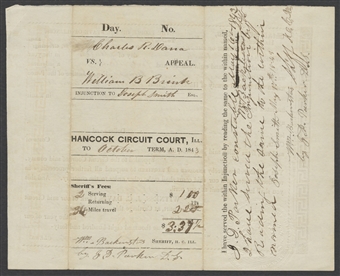 Day. No.
Charles R. Dana
VS. APPEAL.
William B Brink
INJUNCTION TO Joseph Smith Esq.
HANCOCK CIRCUIT COURT, ILL.
TO October TERM, A. D. 1843
Sheriff's Fees
2 Serving $1 00
Returning
Miles travel
$3.37½
Wm Backenstos SHERIFF, H. C. ILL.
by E. D. Parker D.S.
I have served the within Injunction by reading the same to the within named,
I have served the Injunction by
Reading the same to the within
named Joseph Smith
Wm Backenstos Shff